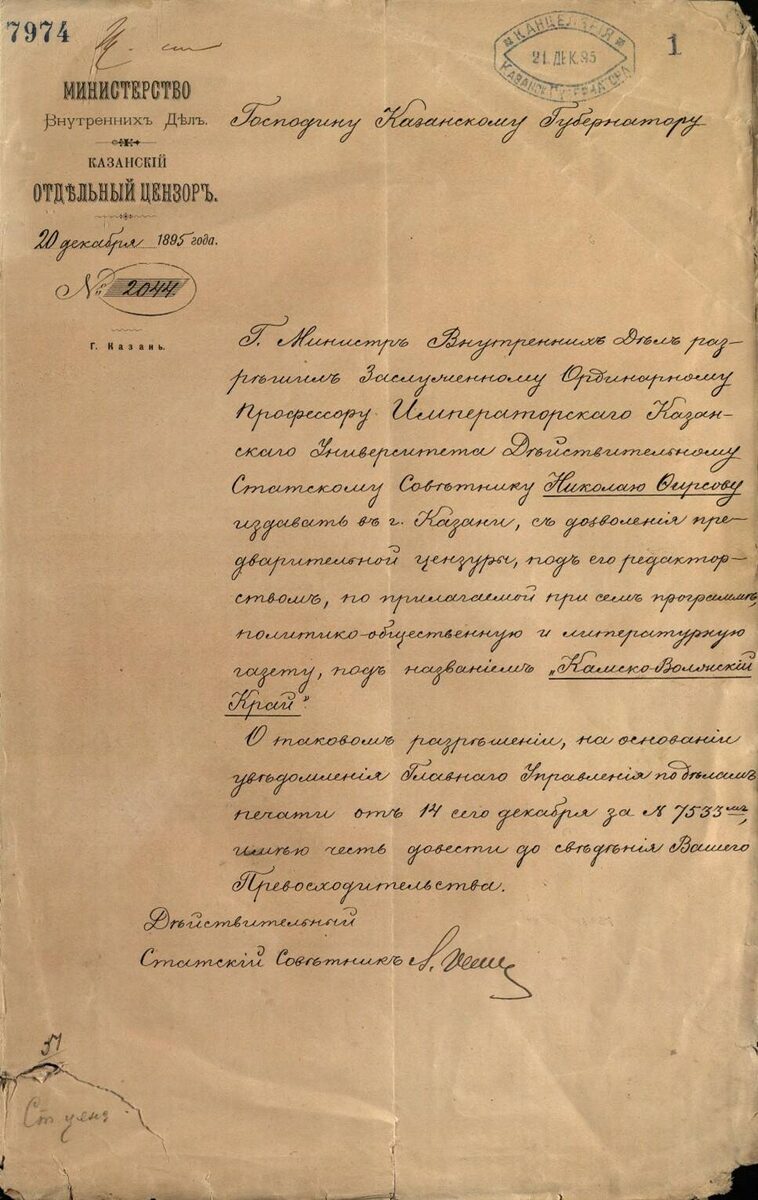 7974
КАНЦЕЛЯРІЯ
21 ДЕК.95
1
МИНИСТЕРСТВО
Внутреннихъ Дѣлъ.
КАЗАНСКІЙ
ОТДѢЛЬНЫЙ ЦЕНЗОРЪ.
20 декабря 1895 года.
№ 2044
Г. Казань.
Господину Казанскому Губернатору
Г. Министръ Внутреннихъ Дѣлъ раз-
рѣшилъ Заслуженному Ординарному
Профессору Императорскаго Казан-
скаго Университета Дѣйствительному
Статскому Совѣтнику Николаю Ѳирсову
издавать въ г. Казани, съ дозволенія пре-
дварительной цензуры, подъ его редактор-
ствомъ, по прилагаемой при семъ программѣ,
политико-общественную и литературную
газету, подъ названіемъ „Камско-Волжскій
Край".
О таковомъ разрѣшеніи, на основаніи
увѣдомленія Главнаго Управленія по дѣламъ
печати отъ 14 сего декабря за № 7533мъ,
имѣю честь довести до свѣдѣнія Вашего
Превосходительства.
Дѣйствительный
Статскій Совѣтникъ